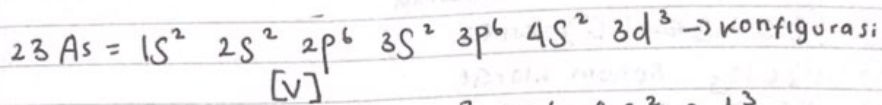 23 As = 1S² 2S² 2p⁶ 3S² 3p⁶ 4S² 3d³ → konfigurasi
[V]